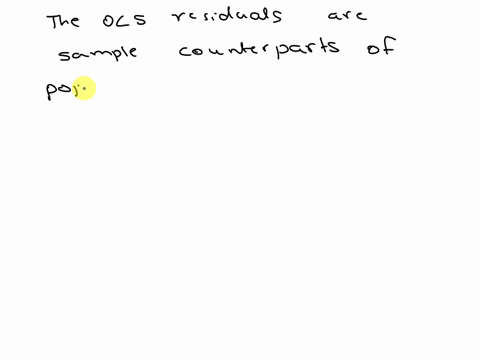 The OLS residuals are
sample counterparts of